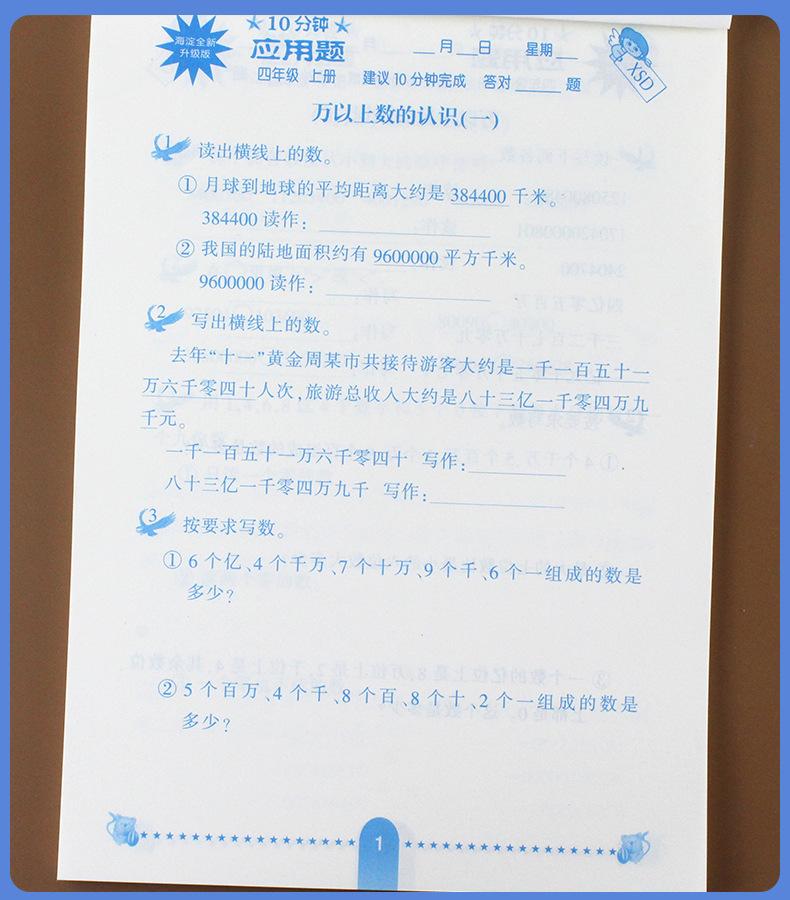 海淀全新
升级版
10分钟
应用题
四年级 上册
__月__日 星期__
建议10分钟完成 答对____题
XSD
万以上数的认识(一)
1 读出横线上的数。
①月球到地球的平均距离大约是384400千米。
384400读作:________
②我国的陆地面积约有9600000平方千米。
9600000读作:________
2 写出横线上的数。
去年“十一”黄金周某市共接待游客大约是一千一百五十一
万六千零四十人次,旅游总收入大约是八十三亿一千零四万九
千元。
一千一百五十一万六千零四十 写作:________
八十三亿一千零四万九千 写作:________
3 按要求写数。
①6个亿、4个千万、7个十万、9个千、6个一组成的数是
多少?
②5个百万、4个千、8个百、8个十、2个一组成的数是
多少?
1